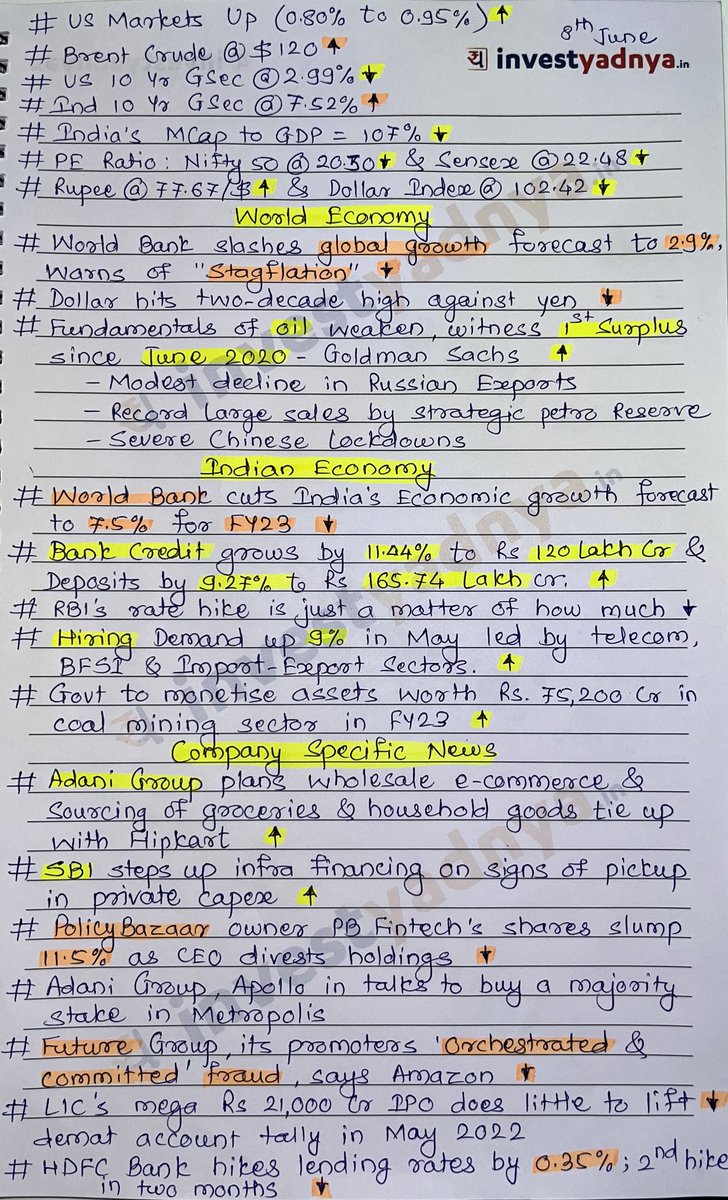 # US Markets Up (0.80% to 0.95%) ↑
8th June
# Brent Crude @ $120 ↑
य investyadnya.in
# US 10 Yr GSec @ 2.99% ↓
# Ind 10 Yr GSec @ 7.52% ↑
# India's MCap to GDP = 107% ↓
# PE Ratio: Nifty 50 @ 20.30 ↓ & Sensex @ 22.48 ↓
# Rupee @ 77.67/$ ↑ & Dollar Index @ 102.42 ↓
World Economy
# World Bank slashes global growth forecast to 2.9%,
warns of "Stagflation" ↓
# Dollar hits two-decade high against yen ↓
# Fundamentals of oil weaken, witness 1st Surplus
since June 2020 - Goldman Sachs ↑
- Modest decline in Russian Exports
- Record large sales by strategic petro Reserve
- Severe Chinese Lockdowns
Indian Economy
# World Bank cuts India's Economic growth forecast
to 7.5% for FY23 ↓
# Bank Credit grows by 11.44% to Rs 120 Lakh Cr &
Deposits by 9.27% to Rs 165.74 Lakh cr. ↑
# RBI's rate hike is just a matter of how much ↓
# Hiring Demand up 9% in May led by telecom,
BFSI & Import-Export Sectors. ↑
# Govt to monetise assets worth Rs. 75,200 Cr in
coal mining sector in FY23 ↑
Company Specific News
# Adani Group plans wholesale e-commerce &
sourcing of groceries & household goods tie up
with Flipkart ↑
# SBI steps up infra financing on signs of pickup
in private capex ↑
# PolicyBazaar owner PB Fintech's shares slump
11.5% as CEO divests holdings ↓
# Adani Group, Apollo in talks to buy a majority
stake in Metropolis
# Future Group, its promoters 'orchestrated &
committed' fraud, says Amazon ↓
# LIC's mega Rs 21,000 Cr IPO does little to lift ↓
demat account tally in May 2022
# HDFC Bank hikes lending rates by 0.35%; 2nd hike
in two months ↓